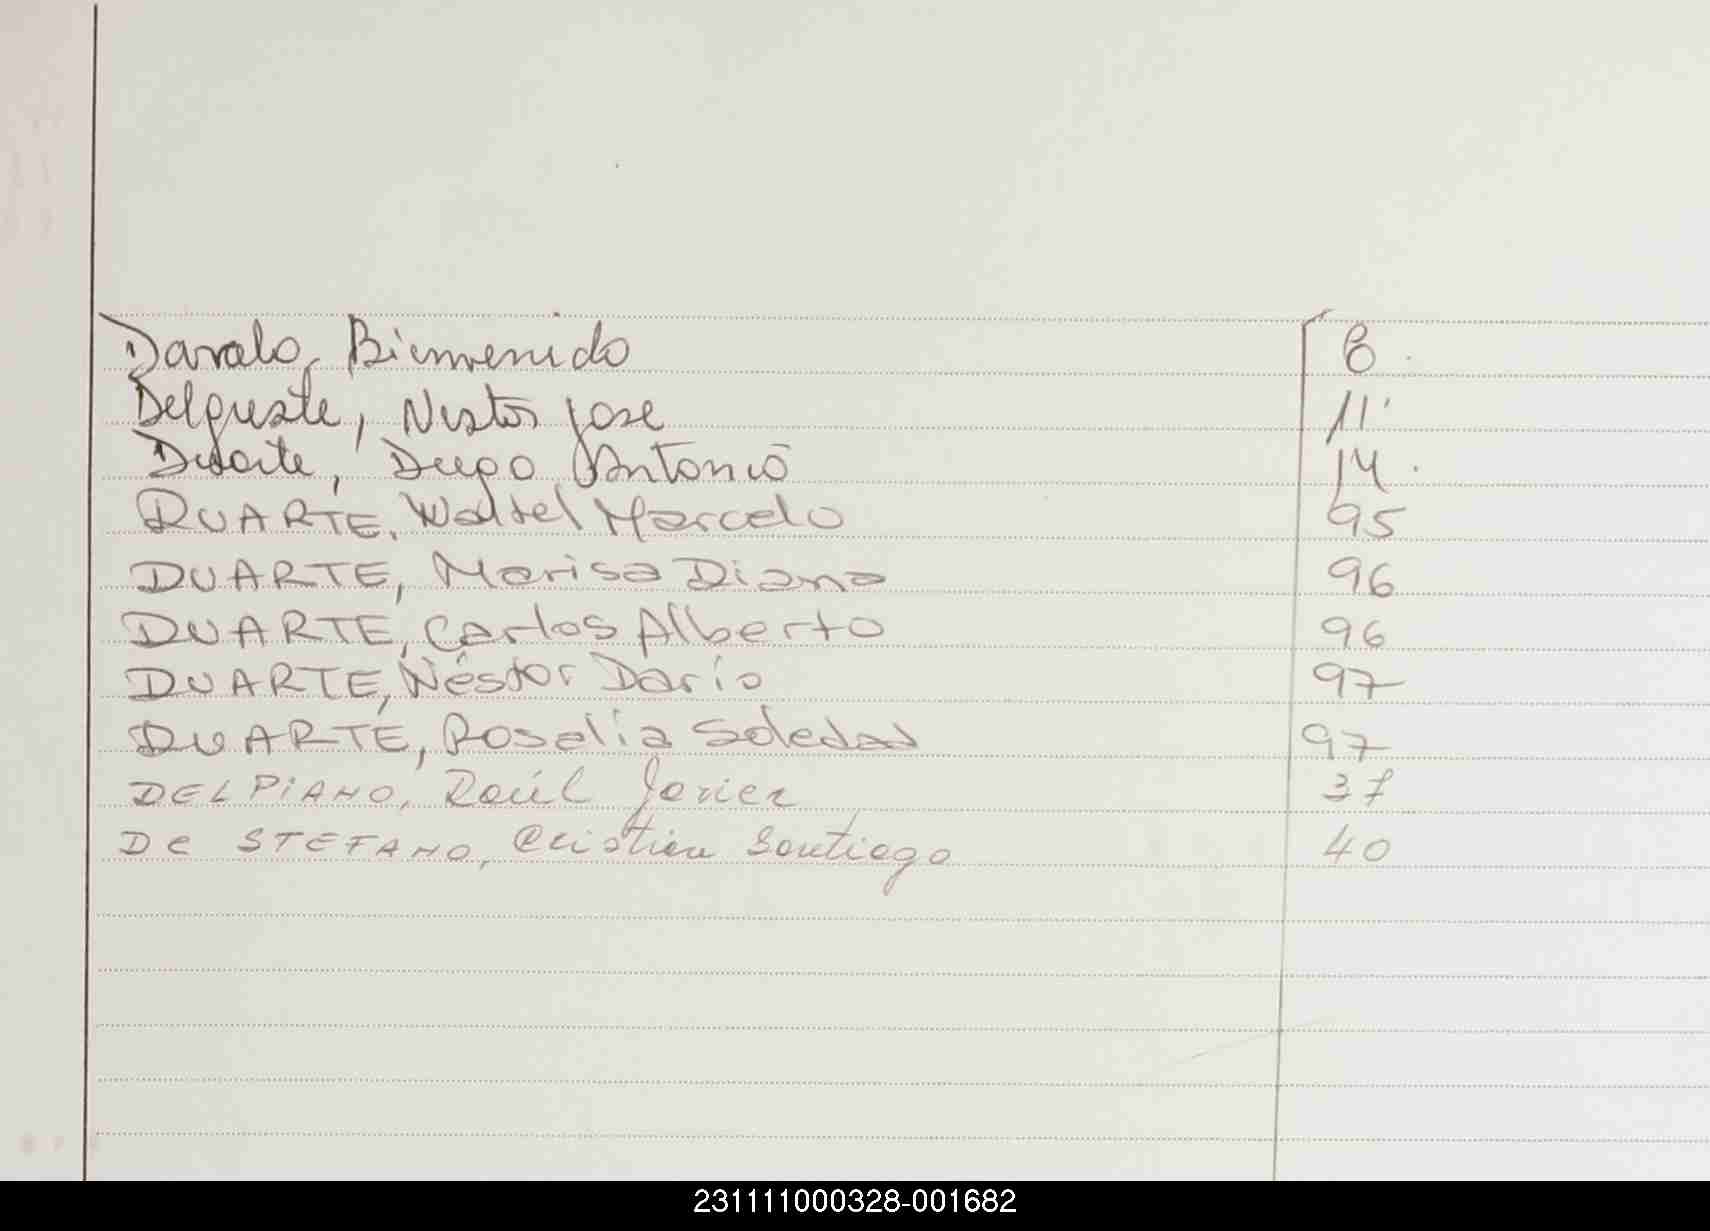 Davalo, Bienvenido 8.
Delguste, Nestor Jose 11
Duarte, Diego Antonio 14.
DUARTE, Walter Marcelo 95
DUARTE, Marisa Diana 96
DUARTE, Carlos Alberto 96
DUARTE, Néstor Darío 97
DUARTE, Rosalía Soledad 97
DELPIANO, Raúl Javier 37
De STEFANO, Cristian Santiago 40
231111000328-001682